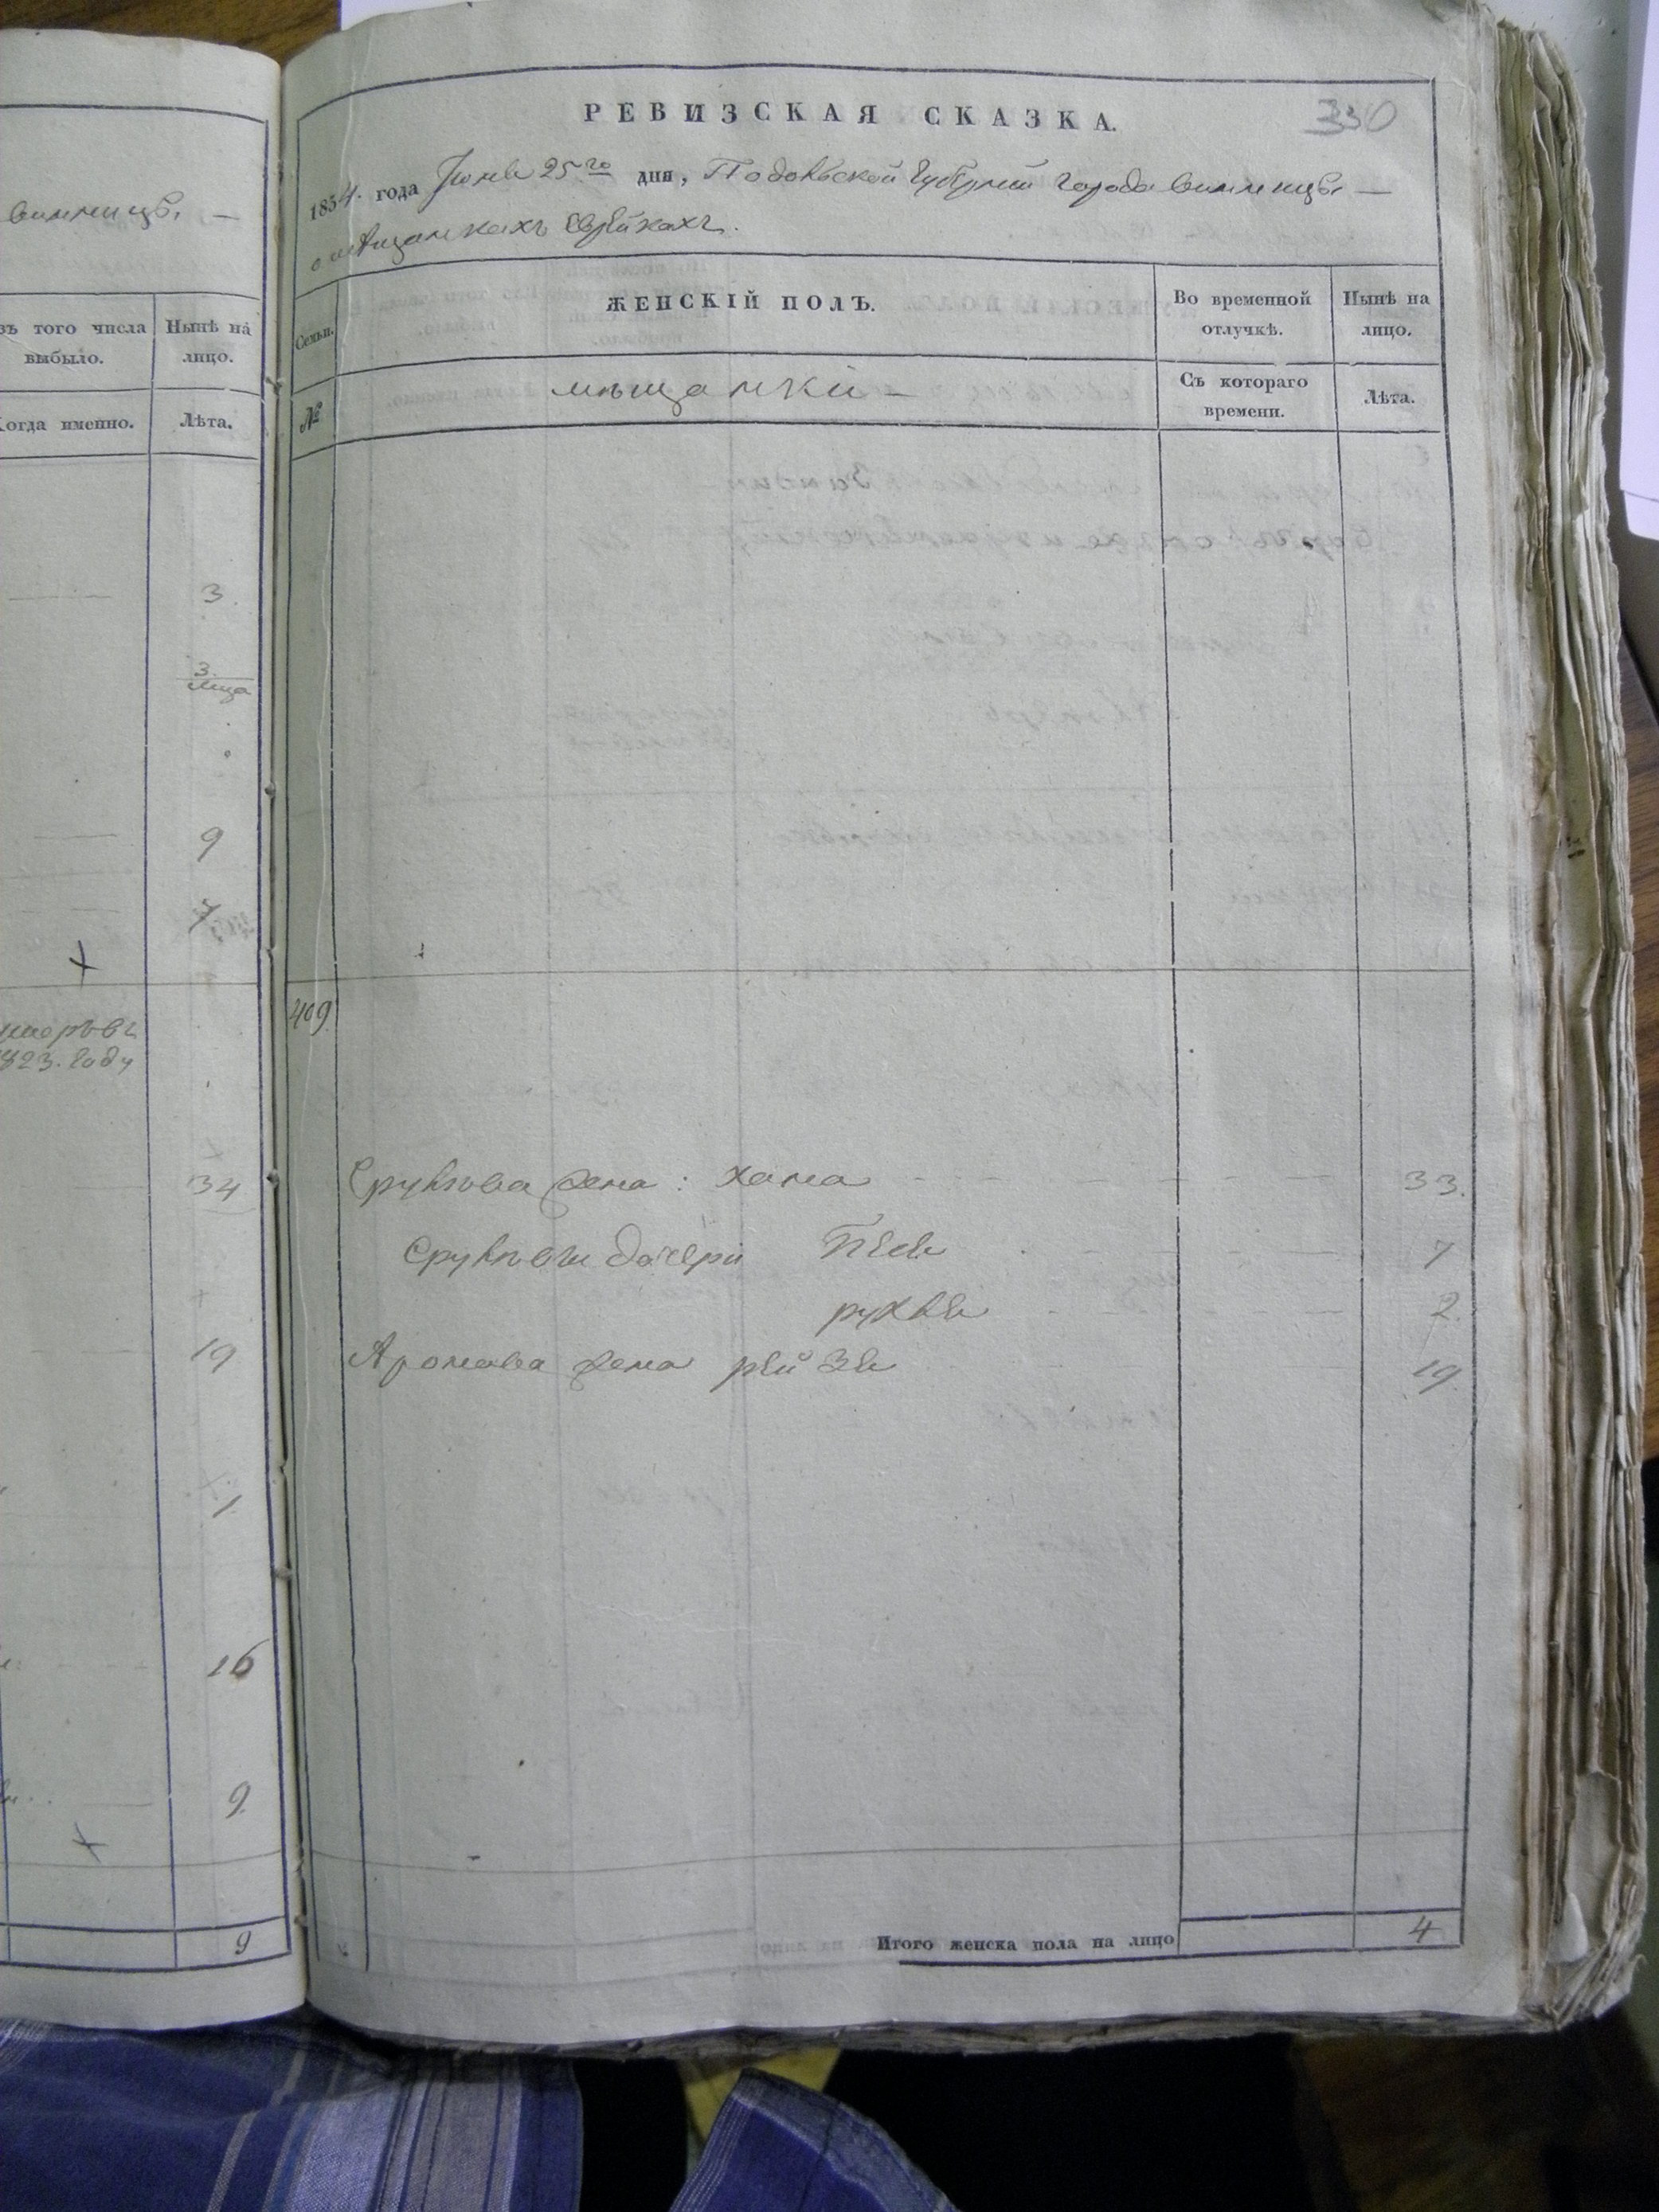 Винницы —
зъ того числа выбыло.
Нынѣ на лицо.
Когда именно.
Лѣта.
3.
3.
9
7
+
умеръ въ
1823. году
34
19
1.
16
9.
+
9
РЕВИЗСКАЯ СКАЗКА.
330
1854. года Іюня 25го дня, Подольской Губерніи города Винницы —
о мѣщанкахъ Еврейкахъ.
Семьи.
ЖЕНСКІЙ ПОЛЪ.
Во временной отлучкѣ.
Нынѣ на лицо.
№
мѣщанки —
Съ котораго времени.
Лѣта.
409
Срулева жена: Хана 33.
Срулевы дочери Песя 7
Рухля 2.
Аронова жена Рейзя 19.
Итого женска пола на лицо 4